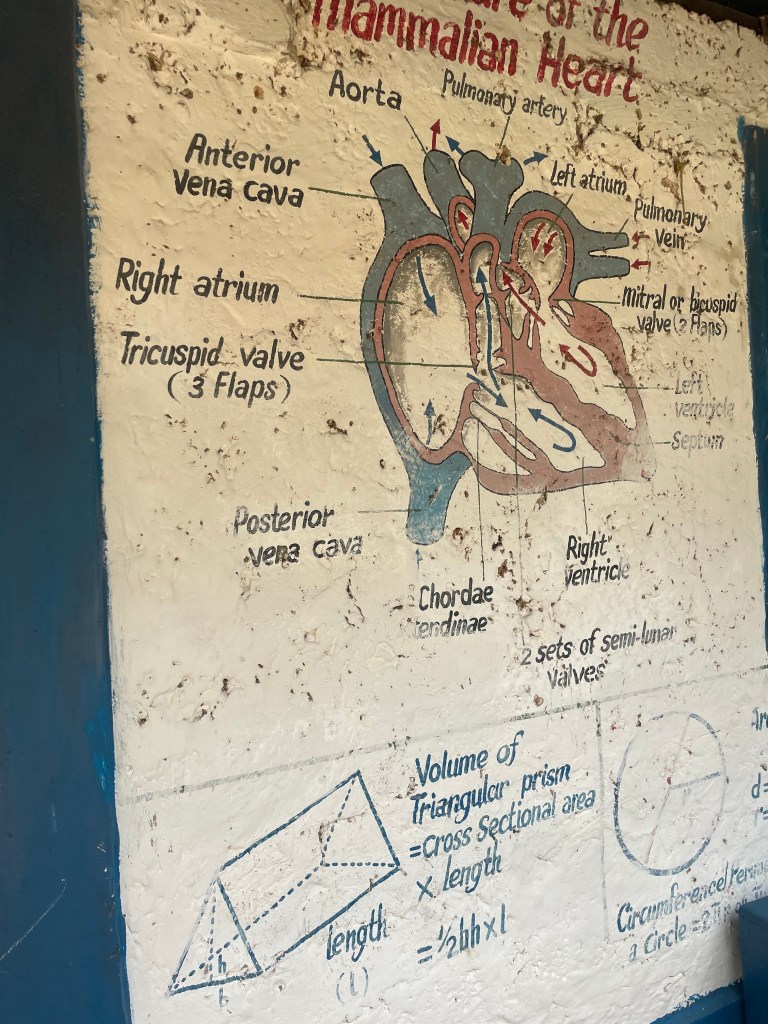 of the
mammalian Heart
Aorta
Pulmonary artery
Anterior
Vena cava
Left atrium
Pulmonary
vein
Right atrium
mitral or bicuspid
valve (2 Flaps)
Tricuspid valve
(3 Flaps)
Left
ventricle
Septum
Posterior
vena cava
Right
ventricle
Chordae
tendinae
2 sets of semi-lunar
valves
Volume of
Triangular prism
=Cross Sectional area
x length
= 1/2bh x l
length
(l)
h
b
2.
d=
r=
Circumference
a circle =